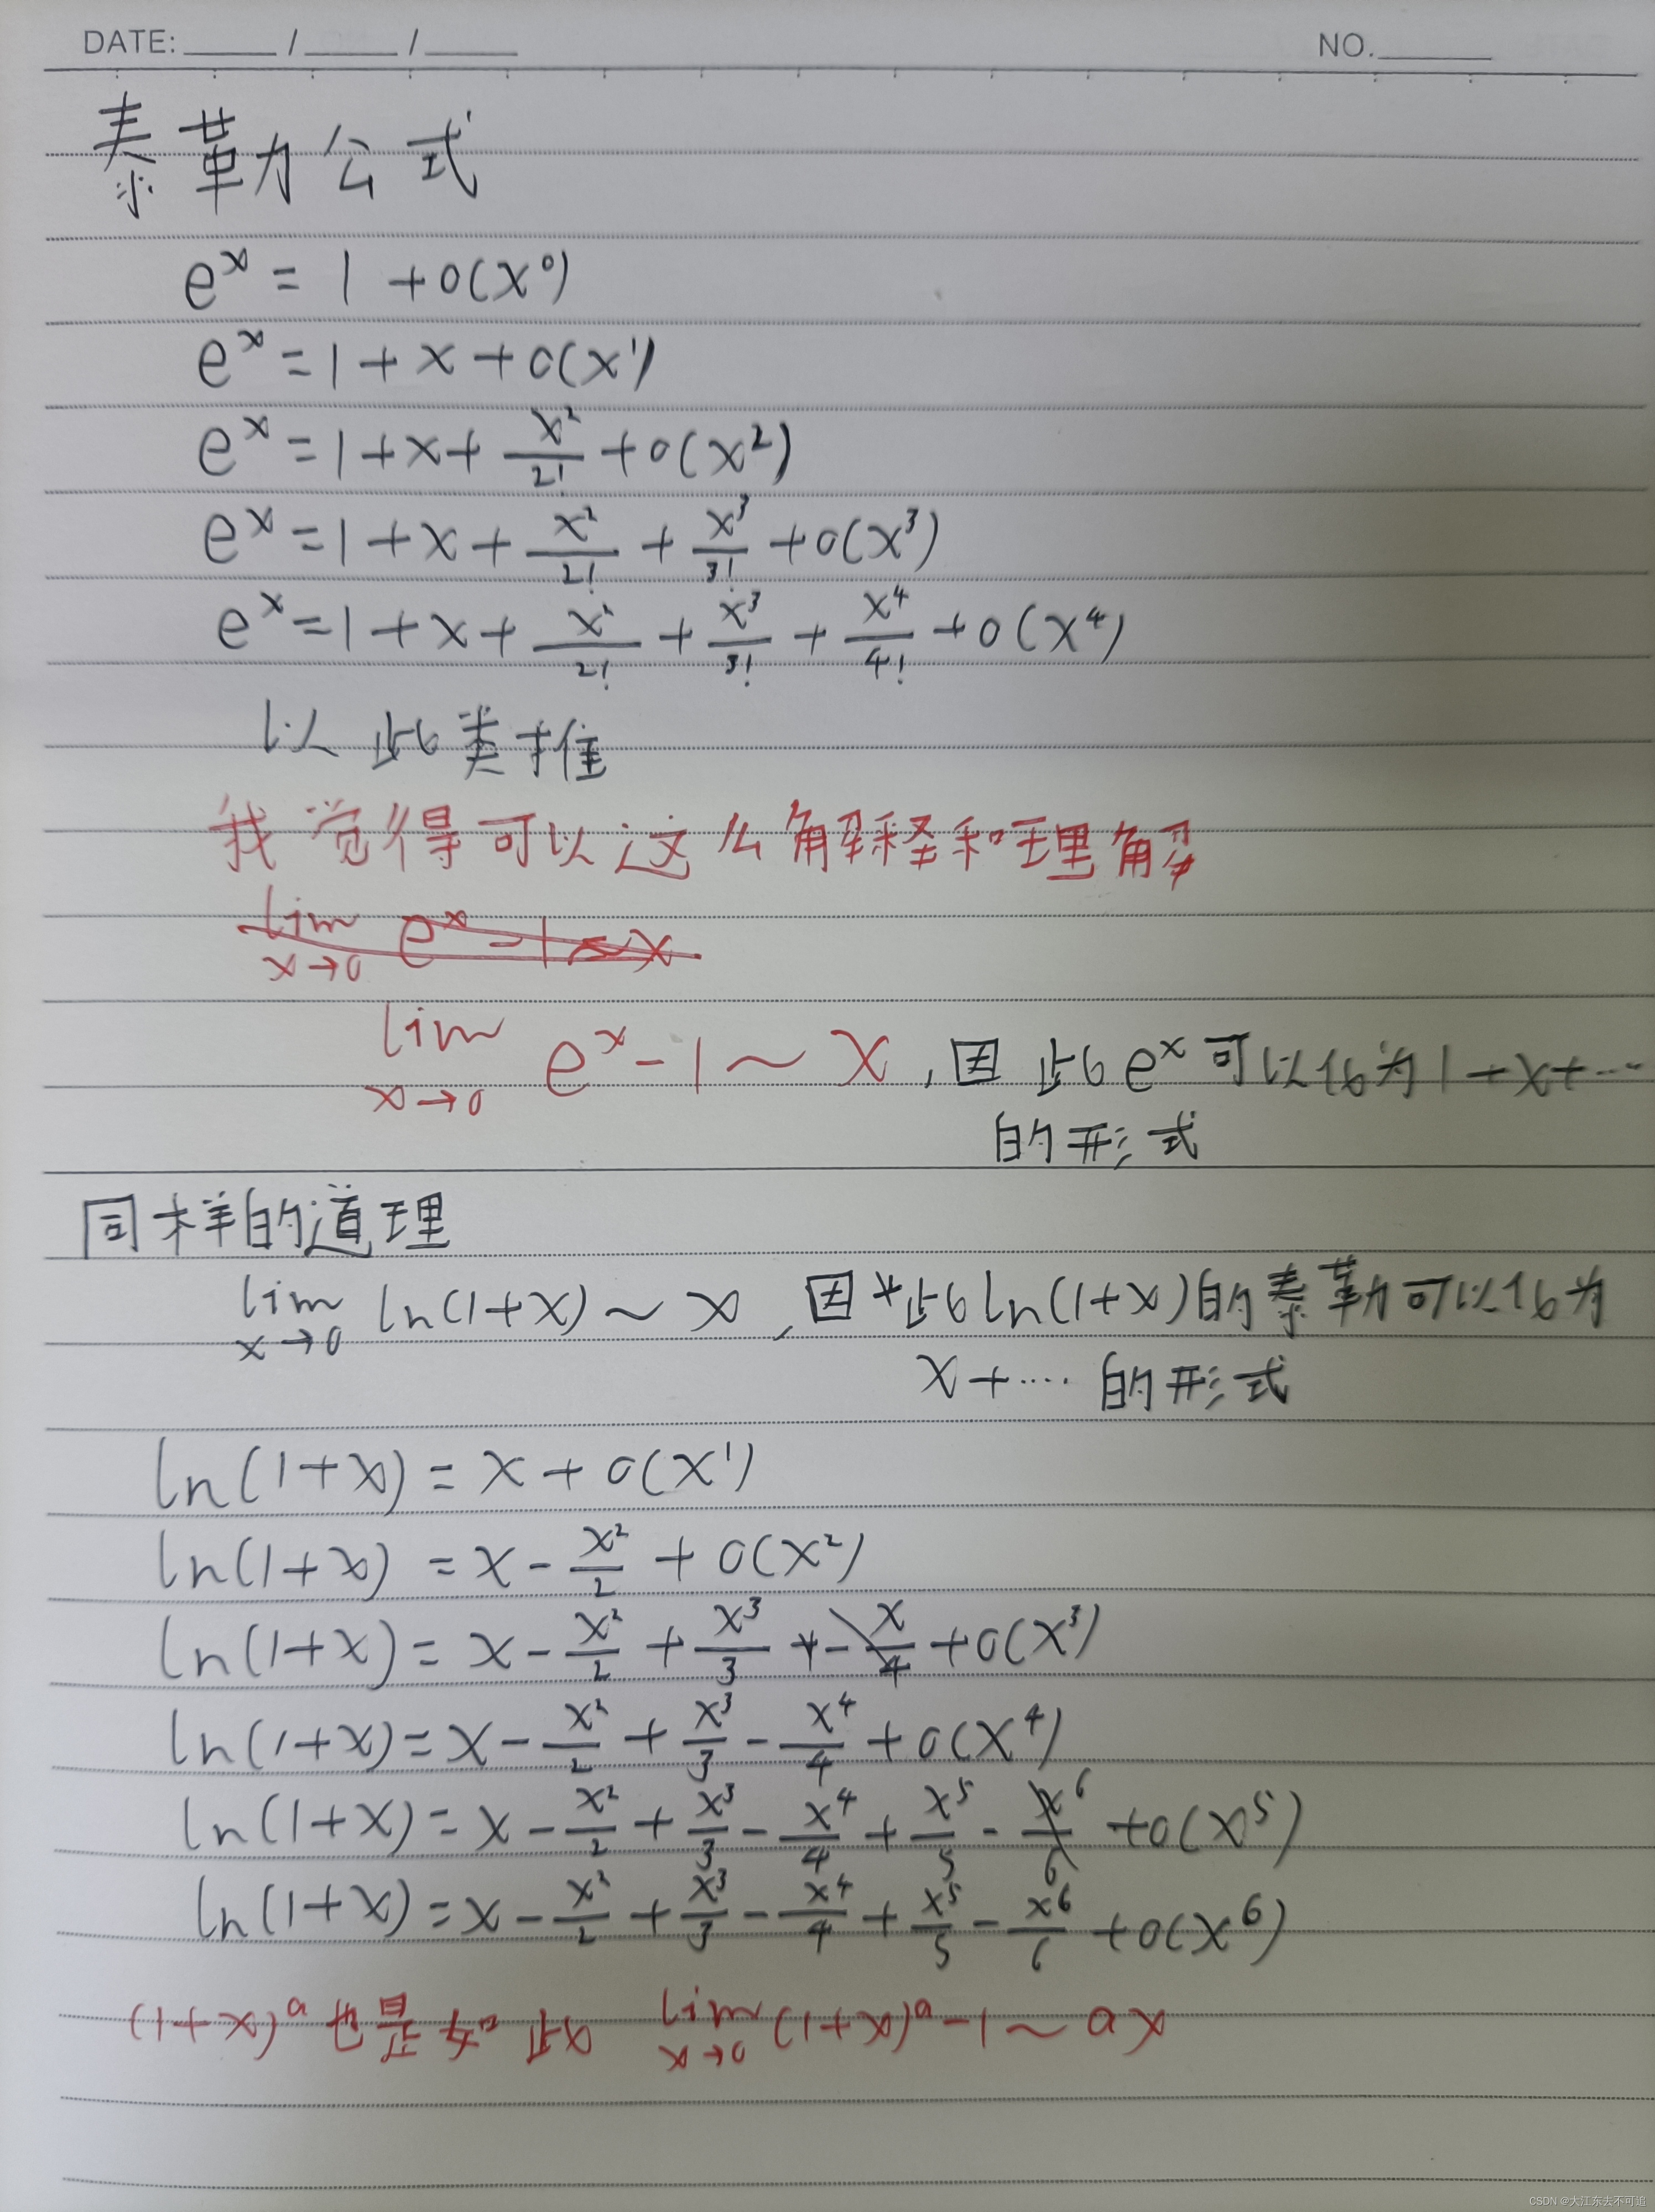 DATE: ____ / ____ / ____ NO. ____
泰勒公式
eˣ = 1 + o(x⁰)
eˣ = 1 + x + o(x¹)
eˣ = 1 + x + x²/2! + o(x²)
eˣ = 1 + x + x²/2! + x³/3! + o(x³)
eˣ = 1 + x + x²/2! + x³/3! + x⁴/4! + o(x⁴)
以此类推
我觉得可以这么解释和理解
lim x→0 eˣ - 1 ~ x
lim x→0 eˣ - 1 ~ x , 因此eˣ可以化为1+x+…
的形式
同样的道理
lim x→0 ln(1+x) ~ x , 因此ln(1+x)的泰勒可以化为
x+…的形式
ln(1+x) = x + o(x¹)
ln(1+x) = x - x²/2 + o(x²)
ln(1+x) = x - x²/2 + x³/3 - x/4 + o(x³)
ln(1+x) = x - x²/2 + x³/3 - x⁴/4 + o(x⁴)
ln(1+x) = x - x²/2 + x³/3 - x⁴/4 + x⁵/5 - x⁶/6 + o(x⁵)
ln(1+x) = x - x²/2 + x³/3 - x⁴/4 + x⁵/5 - x⁶/6 + o(x⁶)
(1+x)ᵃ也是如此 lim x→0 (1+x)ᵃ - 1 ~ ax
CSDN @大江东去不可追